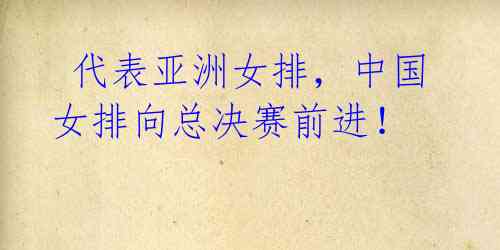 代表亚洲女排，中国
女排向总决赛前进！